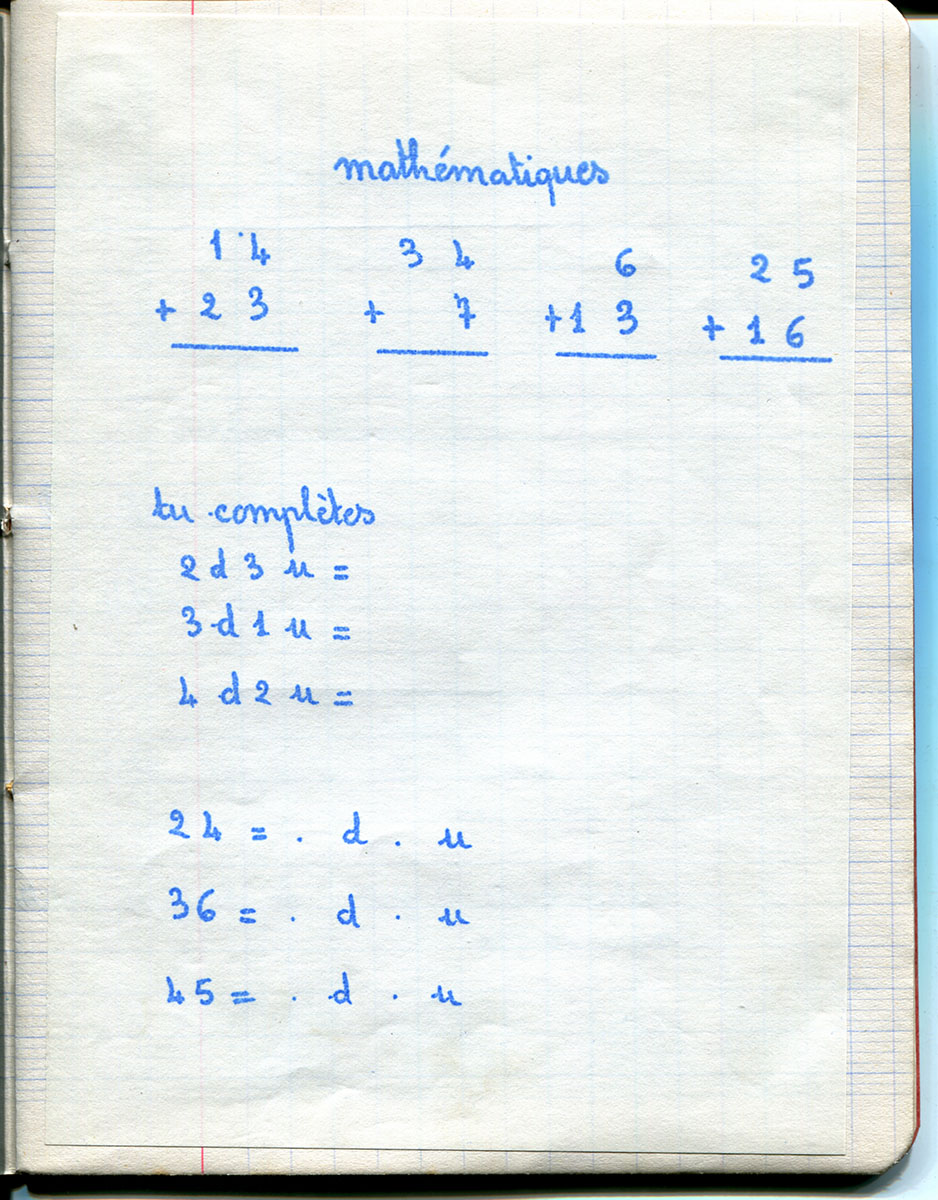 mathématiques
14 34 6 25
+ 23 + 7 +13 + 16
tu complètes
2 d 3 u =
3 d 1 u =
4 d 2 u =
24 = . d . u
36 = . d . u
45 = . d . u